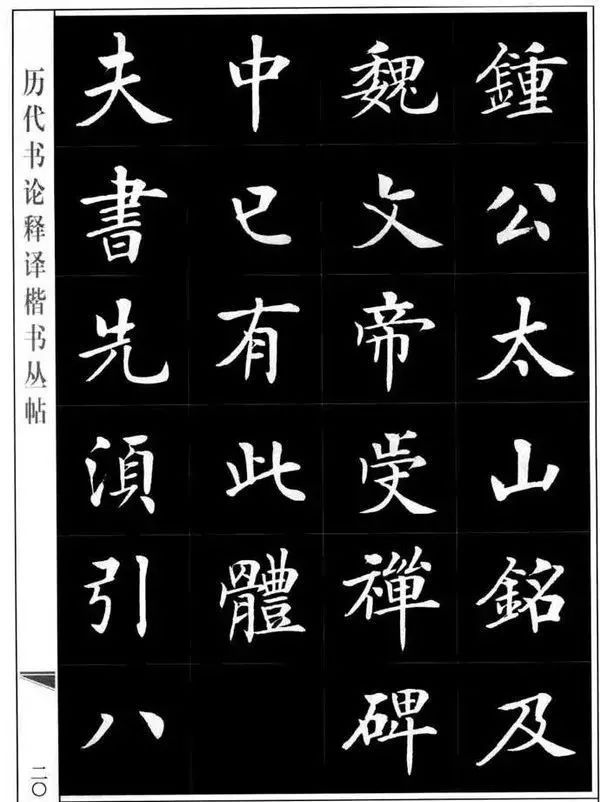 鍾公太山銘及
魏文帝受禪碑
中已有此體
夫書先須引八
历代书论释译楷书丛帖
二〇